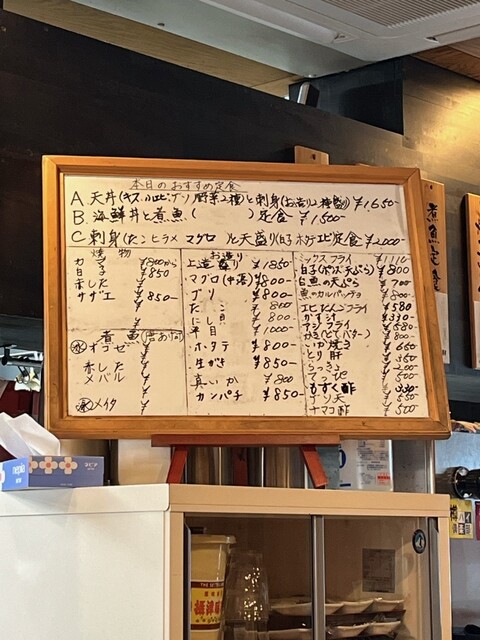 本日のおすすめ定食
A. 天丼(キス、小エビ、ゲソ 野菜2種)と刺身(お造り2種盛り) ¥1650-
B. 海鮮丼と煮魚( )定食 ¥1500-
C 刺身(たこ ヒラメ マグロ)と天盛り(白子 ホタテ エビ)定食 ¥2000-
焼物
カマ ¥800から
白子 ¥850
赤した ¥
サザエ ¥850-
煮魚
オコゼ ¥
赤した ¥
メバル ¥
メイタ ¥
お造り
上造盛り ¥1850-
マグロ(中落) ¥800-
ブリ ¥800-
たこ ¥800
にし貝 ¥800
平目 ¥1000-
ホタテ ¥800-
生がき ¥850-
真いか ¥800
カンパチ ¥850-
ミックスフライ ¥1110-
白子(ポン酢、天ぷら) ¥800
白魚の天ぷら ¥700
魚のカルパッチョ ¥800-
エビ天orフライ ¥580
かす汁 ¥330-
アジフライ ¥580
かき(ピザバター) 800-
いか焼き ¥650
とり肝 350
もずく酢 330-
ゲソ天 500
ナマコ酢 500
煮魚定食
nepia